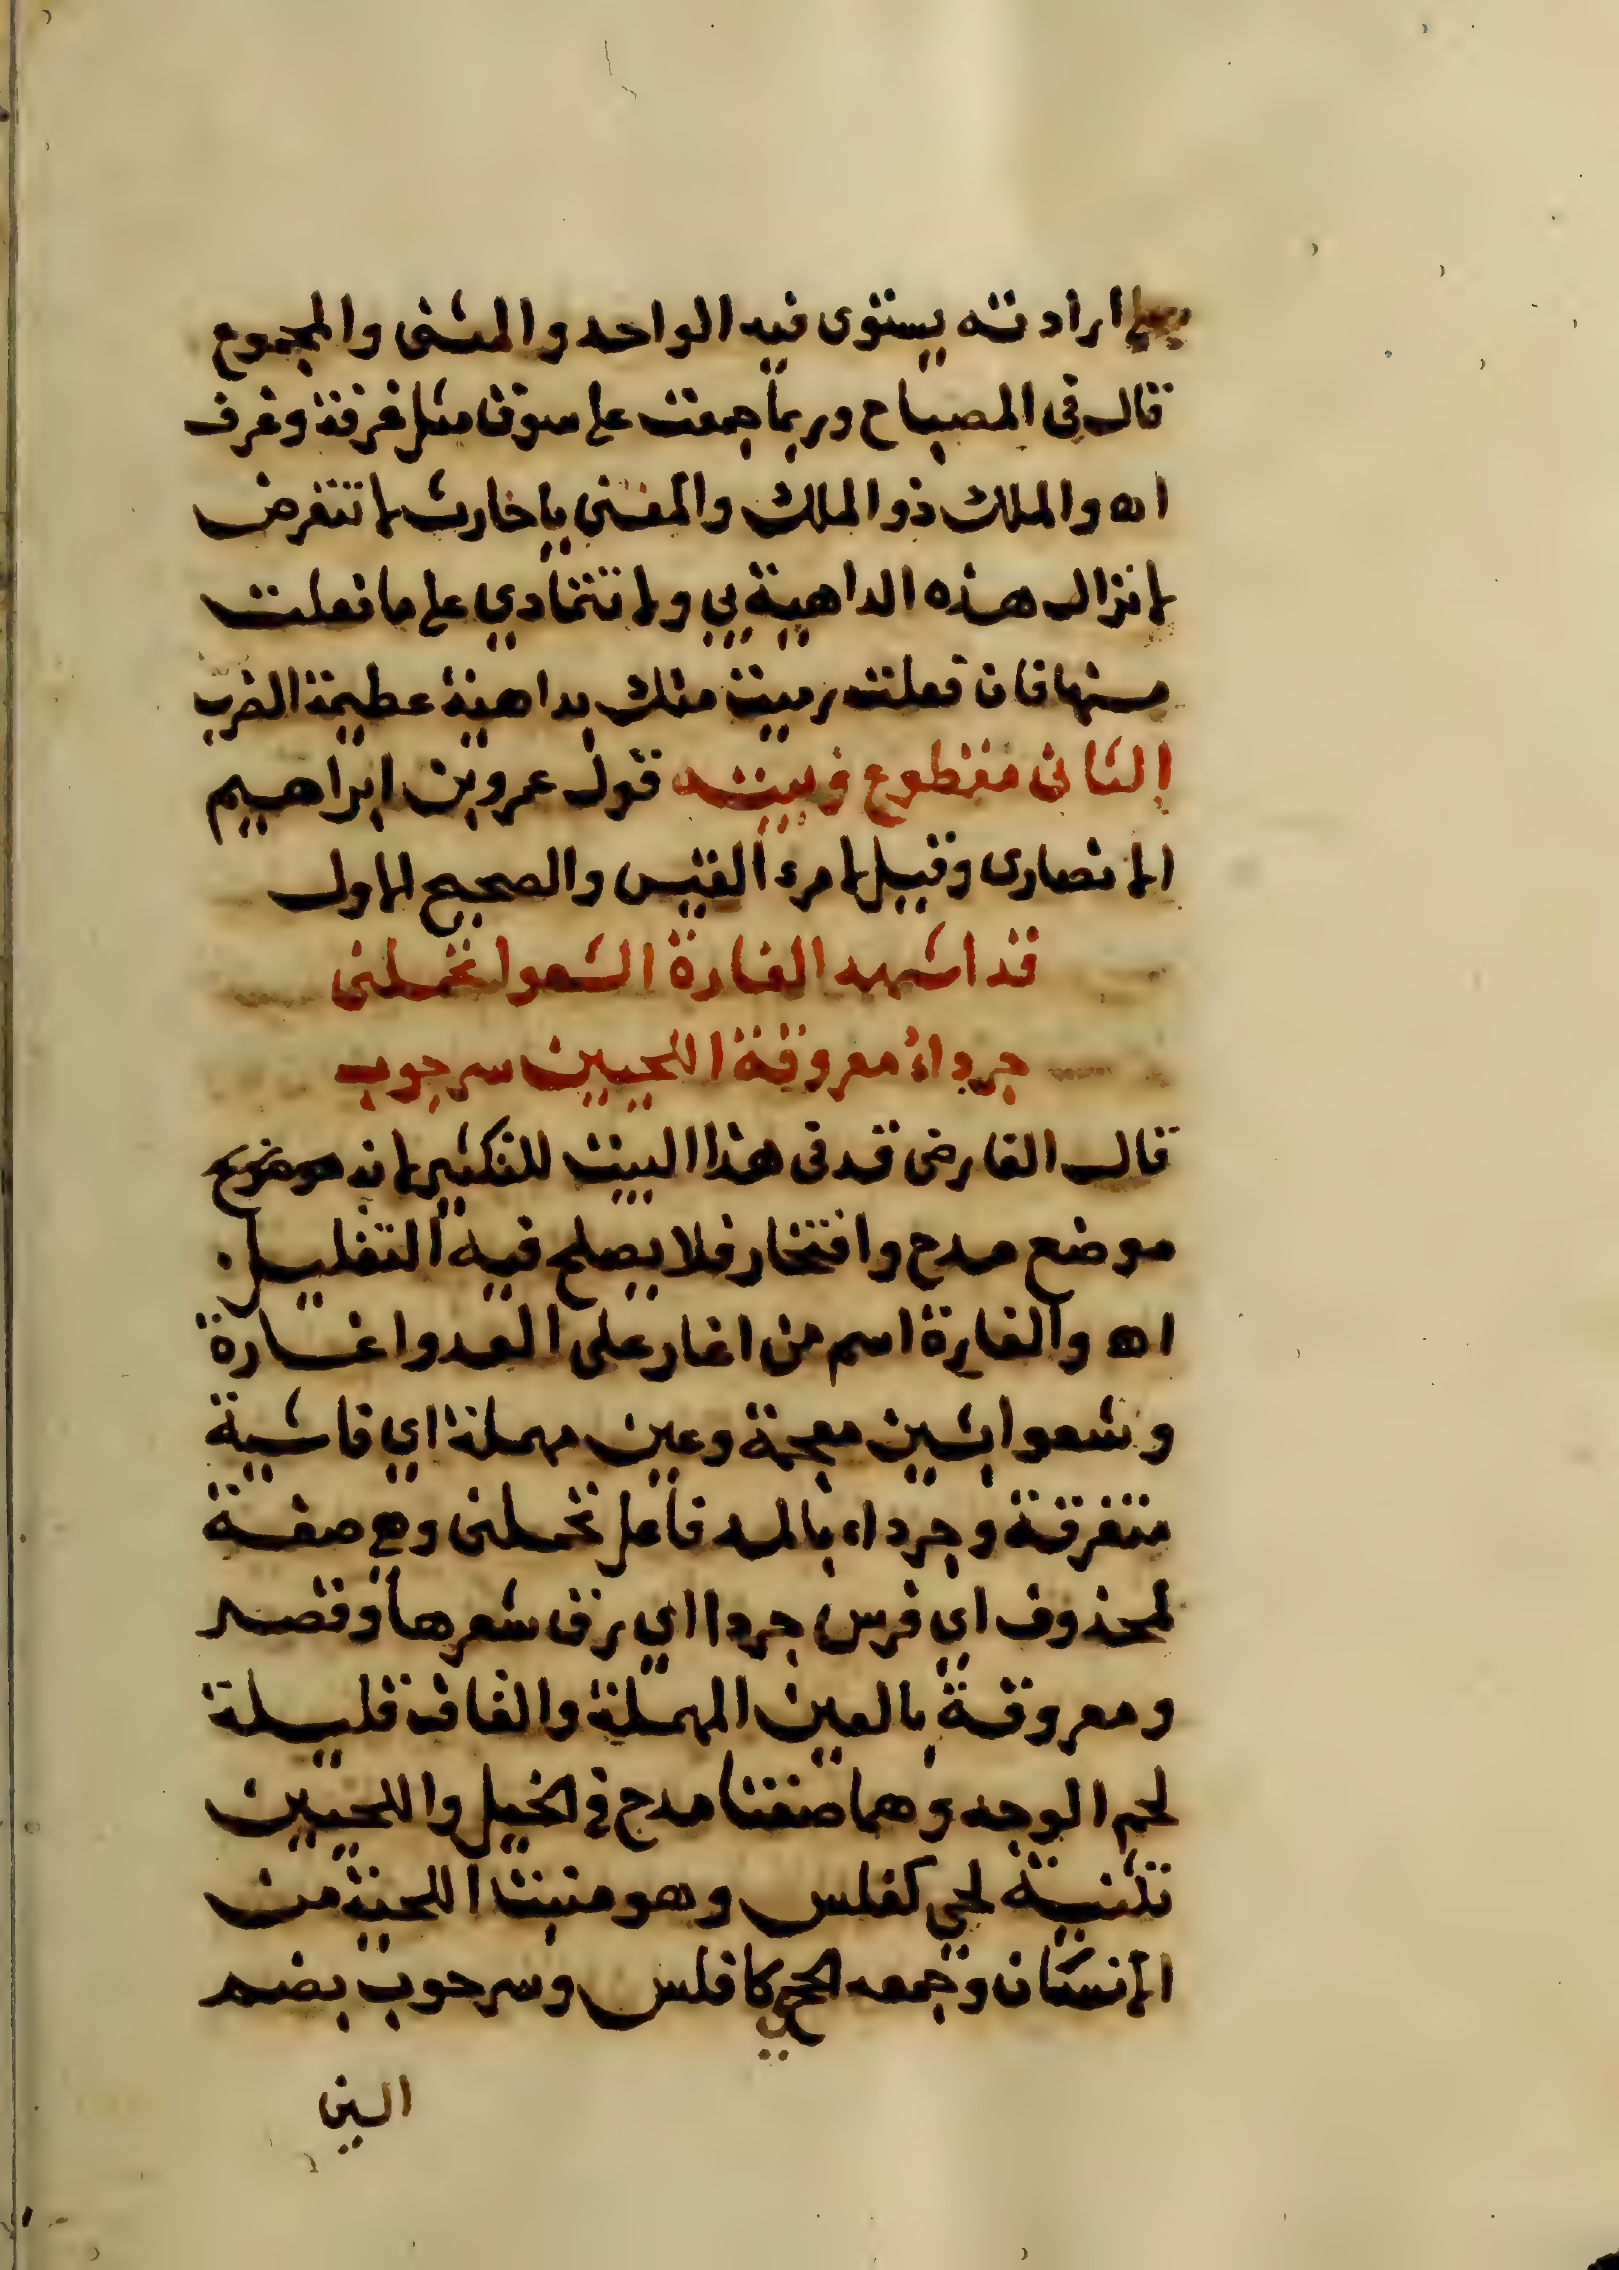 على ارادته يستوى فيه الواحد والمثنى والمجموع
قال فى المصباح وربما جمعت على سوق مثل غرفة وغرف
اه والملك ذو الملك والمعنى يا حارث لا تتعرض
لانزال هذه الداهية بي ولا تتمادي على ما فعلت
منها فان فعلت رميت منك بداهية عظيمة الضرب
الثانى مقطوع وبيته قول عمرو بن ابراهيم
الانصارى وقيل لامرء القيس والصحيح الاول
قد اشهد الغارة الشعوا تحملنى
جرداء معروقة اللحيين سرحوب
قال الفارضى قد فى هذا البيت للتكثير لانه موضع
موضع مدح وافتخار فلا يصلح فيه التقليل
اه والغارة اسم من اغار على العدو اغارة
وشعوا بشين معجمة وعين مهملة اي فاشية
متفرقة وجرداء بالمد فاعل تحملنى وهى صفة
لمحذوف اي فرس جردا اي رق شعرها وقصر
ومعروقة بالعين المهملة والقاف قليلة
لحم الوجه وهما صفتا مدح فى الخيل واللحيين
تثنية لحي كفلس وهو منبت اللحية من
الانسان وجمعه الحي كافلس وسرحوب بضم
السين